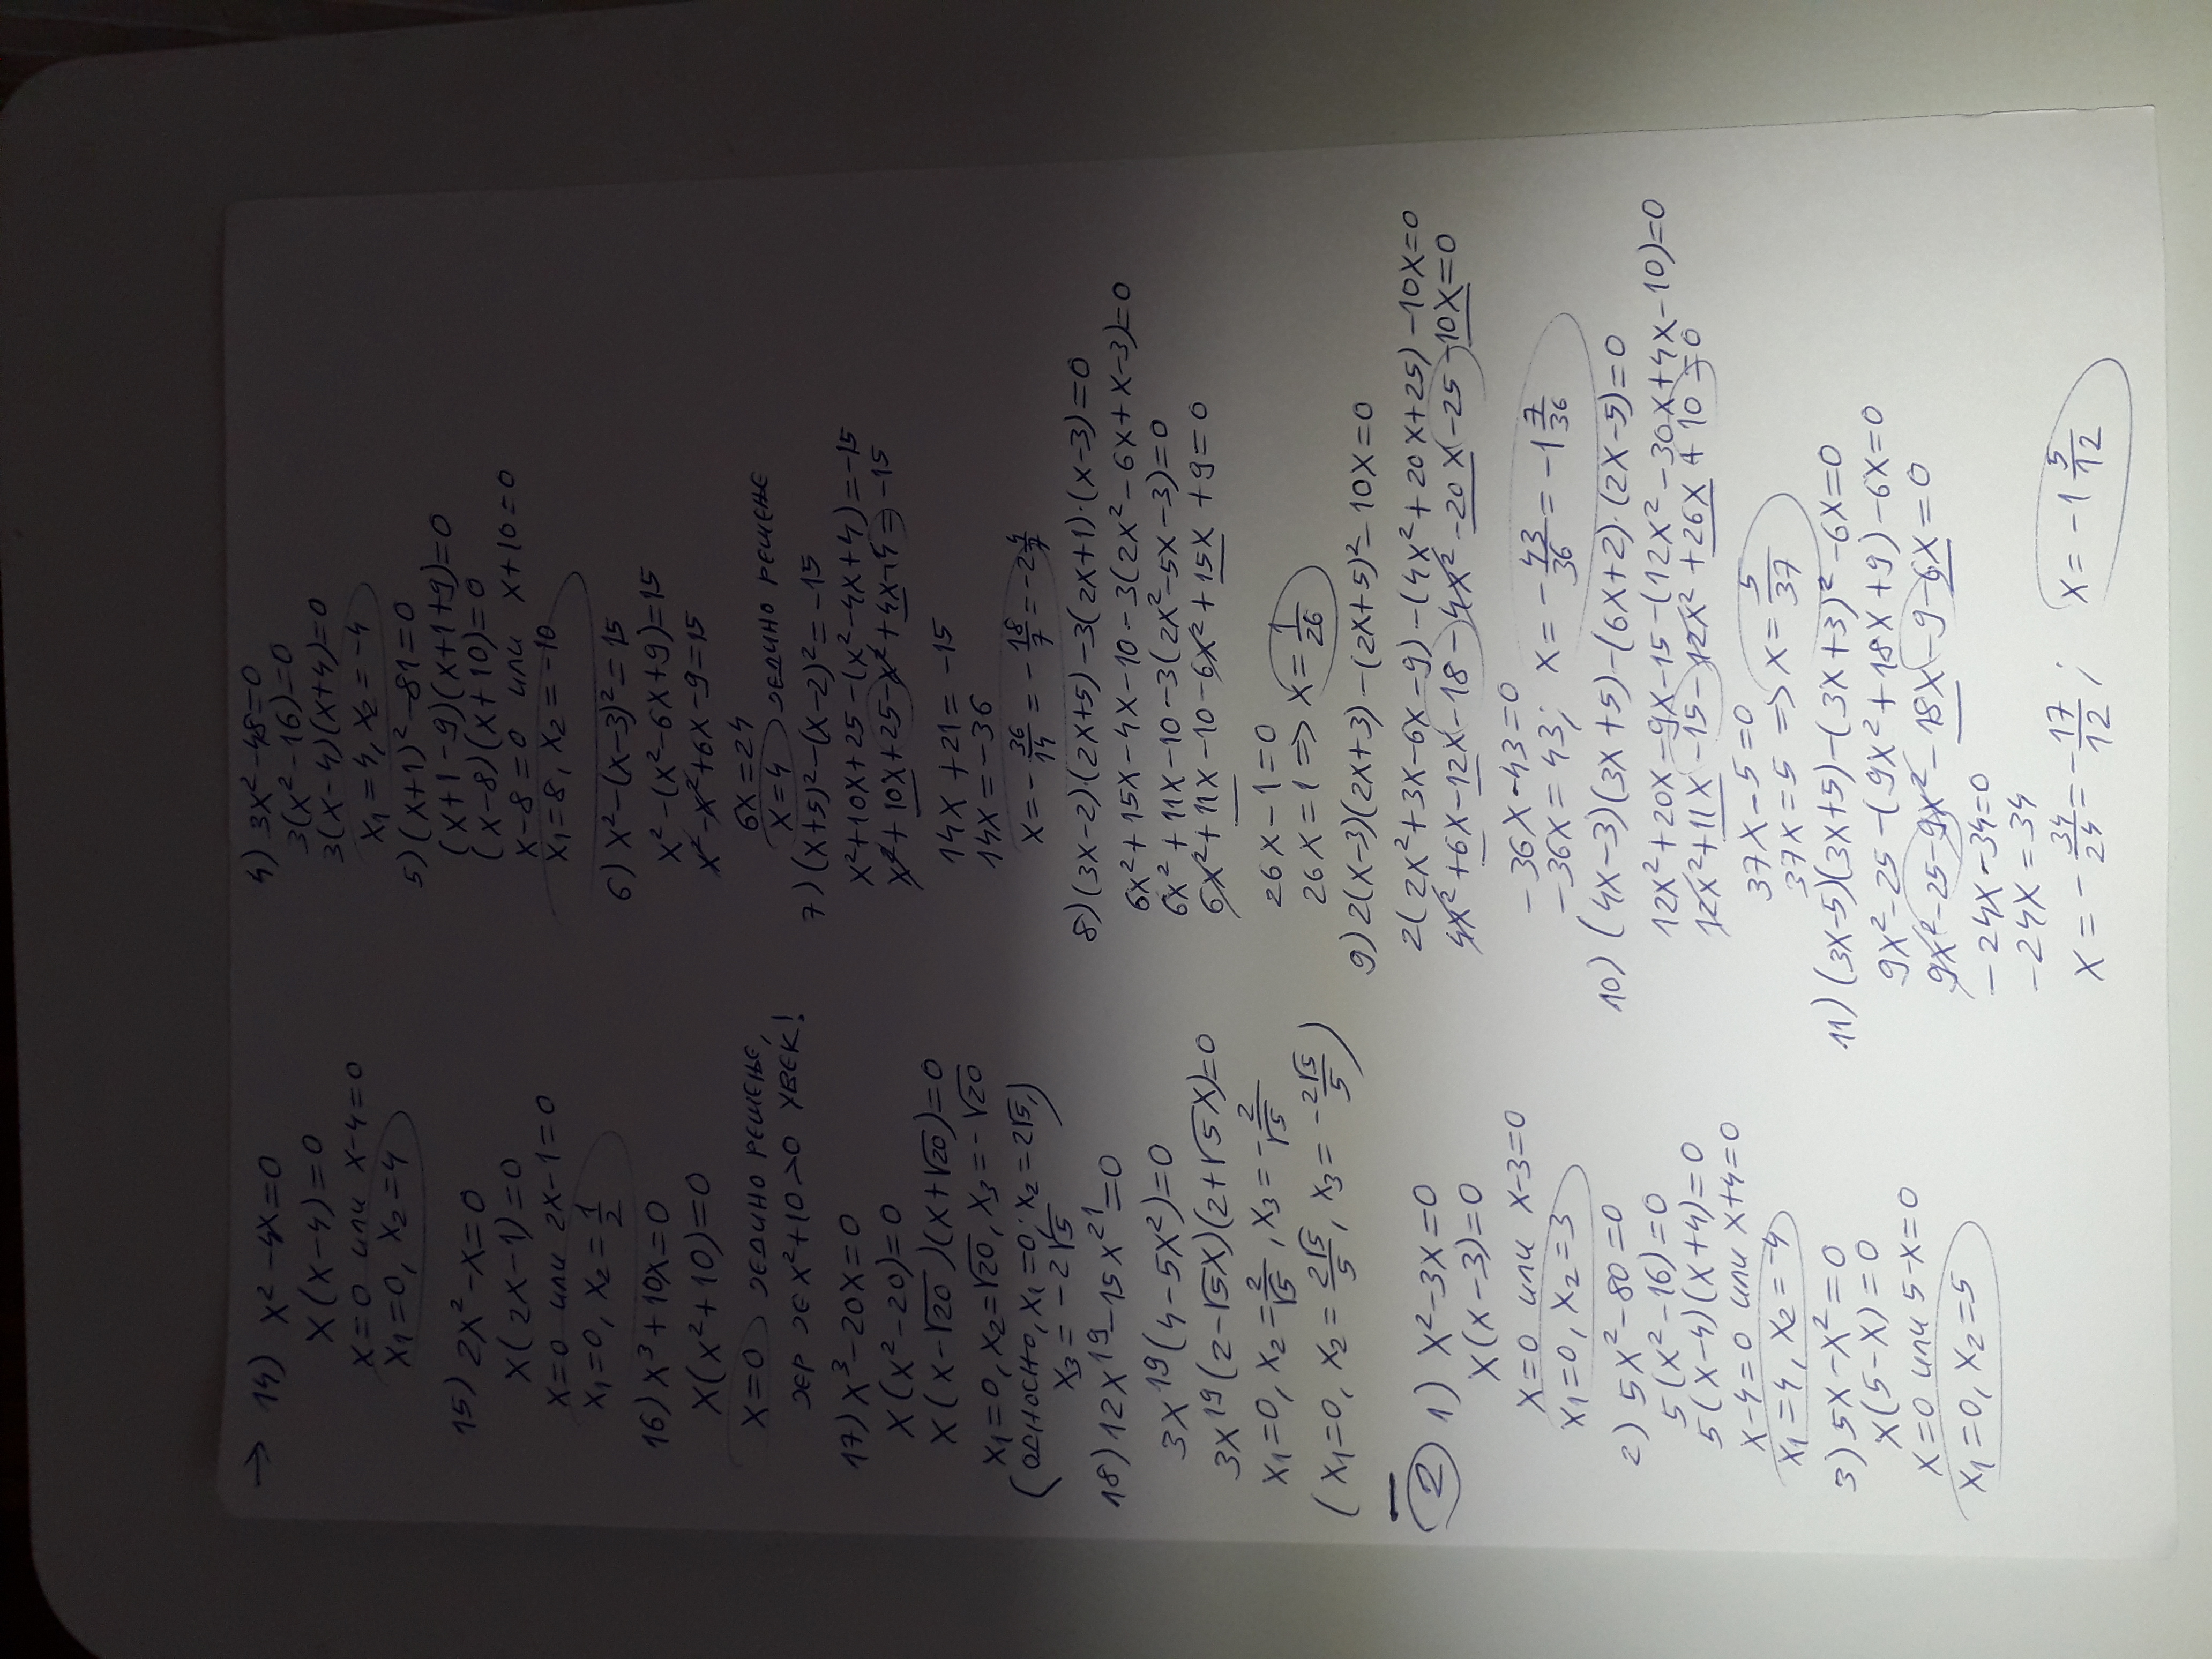 → 14) x² - 4x = 0
x(x-4) = 0
x=0 или x-4=0
x₁=0, x₂=4
15) 2x² - x = 0
x(2x-1) = 0
x=0 или 2x-1=0
x₁=0, x₂=1/2
16) x³ + 10x = 0
x(x²+10) = 0
x=0 ЈЕДИНО РЕШЕЊЕ,
ЈЕР ЈЕ x²+10>0 УВЕК!
17) x³ - 20x = 0
x(x²-20) = 0
x(x-√20)(x+√20) = 0
x₁=0, x₂=√20, x₃=-√20
(ОСНОСНО, x₁=0; x₂=2√5,
x₃=-2√5)
18) 12x¹⁹ - 15x²¹ = 0
3x¹⁹(4-5x²) = 0
3x¹⁹(2-√5x)(2+√5x) = 0
x₁=0, x₂=2/√5, x₃=-2/√5
(x₁=0, x₂=2√5/5, x₃=-2√5/5)
② 1) x² - 3x = 0
x(x-3) = 0
x=0 или x-3=0
x₁=0, x₂=3
2) 5x² - 80 = 0
5(x²-16) = 0
5(x-4)(x+4) = 0
x-4=0 или x+4=0
x₁=4, x₂=-4
3) 5x - x² = 0
x(5-x) = 0
x=0 или 5-x=0
x₁=0, x₂=5
4) 3x² - 48 = 0
3(x²-16) = 0
3(x-4)(x+4) = 0
x₁=4, x₂=-4
5) (x+1)² - 81 = 0
(x+1-9)(x+1+9) = 0
(x-8)(x+10) = 0
x-8=0 или x+10=0
x₁=8, x₂=-10
6) x² - (x-3)² = 15
x² - (x²-6x+9) = 15
x² - x² + 6x - 9 = 15
6x = 24
x=4 ЈЕДИНО РЕШЕЊЕ
7) (x+5)² - (x-2)² = -15
x² + 10x + 25 - (x²-4x+4) = -15
x² + 10x + 25 - x² + 4x - 4 = -15
14x + 21 = -15
14x = -36
x = -36/14 = -18/7 = -2 4/7
8) (3x-2)·(2x+5) - 3(2x+1)·(x-3) = 0
6x² + 15x - 4x - 10 - 3(2x² - 6x + x - 3) = 0
6x² + 11x - 10 - 3(2x² - 5x - 3) = 0
6x² + 11x - 10 - 6x² + 15x + 9 = 0
26x - 1 = 0
26x = 1 => x = 1/26
9) 2(x-3)(2x+3) - (2x+5)² - 10x = 0
2(2x² + 3x - 6x - 9) - (4x² + 20x + 25) - 10x = 0
4x² + 6x - 12x - 18 - 4x² - 20x - 25 - 10x = 0
-36x - 43 = 0
-36x = 43; x = -43/36 = -1 7/36
10) (4x-3)(3x+5) - (6x+2)·(2x-5) = 0
12x² + 20x - 9x - 15 - (12x² - 30x + 4x - 10) = 0
12x² + 11x - 15 - 12x² + 26x + 10 = 0
37x - 5 = 0
37x = 5 => x = 5/37
11) (3x-5)(3x+5) - (3x+3)² - 6x = 0
9x² - 25 - (9x² + 18x + 9) - 6x = 0
9x² - 25 - 9x² - 18x - 9 - 6x = 0
-24x - 34 = 0
-24x = 34
x = -34/24 = -17/12; x = -1 5/12